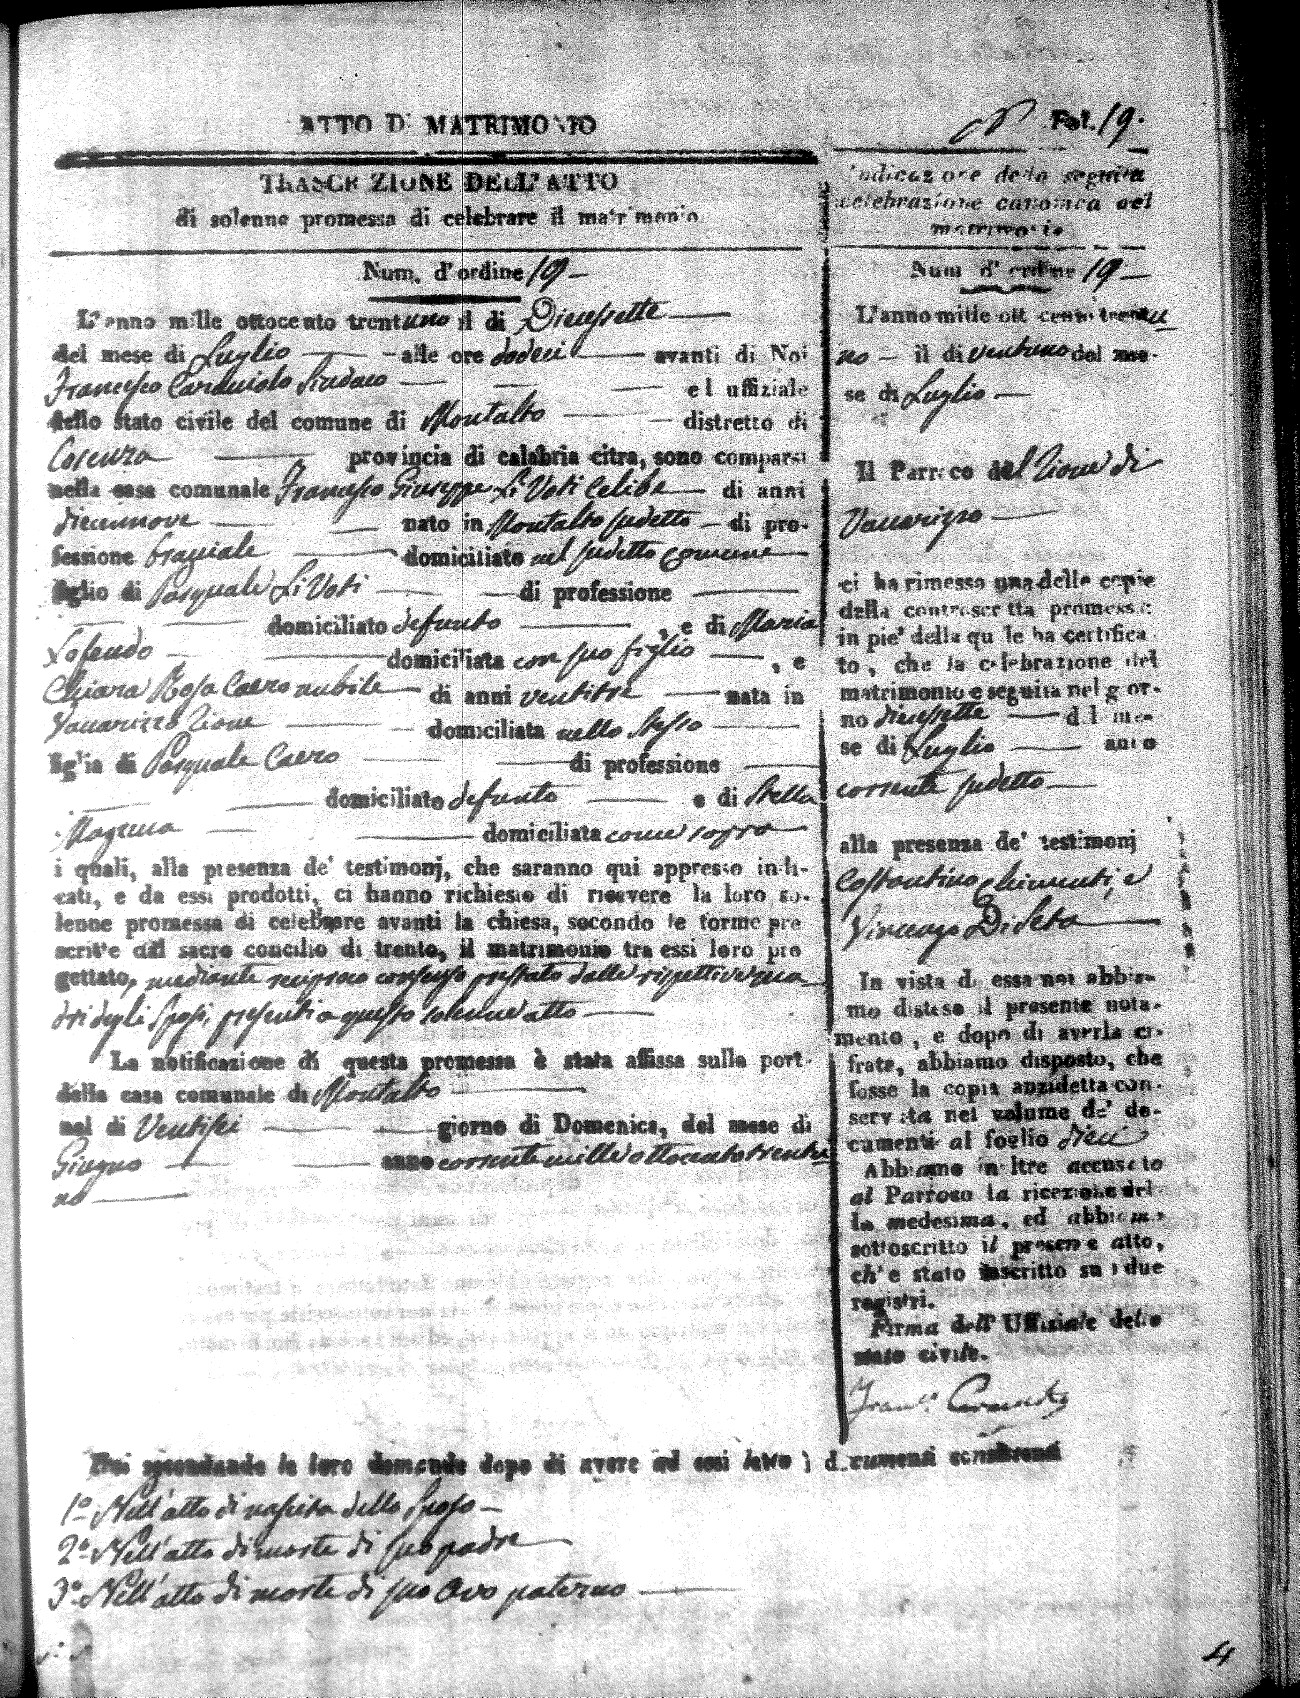 ATTO DI MATRIMONIO
Fol. 19.
TRASCRIZIONE DELL'ATTO
di solenne promessa di celebrare il matrimonio
Num. d'ordine 19 —
L'anno mille ottocento trentuno il di Diciessette —
del mese di Luglio — alle ore dodeci — avanti di Noi
Francesco Sindaco — — — ed uffiziale
dello stato civile del comune di Montalto — — distretto di
Cosenza — — provincia di calabria citra, sono comparsi
nella casa comunale Francesco Giuseppe Li Voti Celibe — di anni
diecinnove — — nato in Montalto sudetto — di pro-
fessione bracciale — domiciliato nel sudetto comune —
figlio di Pasquale Li Voti — — di professione —
— — domiciliato defunto — , e di Maria
— — domiciliata con suo figlio — , e
Chiara Rosa Caero nubile — di anni ventitre — nata in
Vaccarizzo Rione — — domiciliata nello stesso —
figlia di Pasquale Caero — — di professione —
— — domiciliato defunto — e di Stella
— — domiciliata come sopra —
i quali, alla presenza de' testimonj, che saranno qui appresso indi-
cati, e da essi prodotti, ci hanno richiesto di ricevere la loro so-
lenne promessa di celebrare avanti la chiesa, secondo le forme pre
scritte dal sacro concilio di trento, il matrimonio tra essi loro pro
gettato, mediante reciproco consenso prestato dalle rispettive ma
dri degli Sposi, presenti a questo solenne atto —
La notificazione di questa promessa è stata affissa sulla port-
della casa comunale di Montalto —
nel di Ventisei — — giorno di Domenica, del mese di
Giugno — — anno corrente mille ottocento trentu
no —
Indicazione della seguita
celebrazione canonica del
matrimonio
Num d'ordine 19 —
L'anno mille ott cento trentu
no — il di ventuno del me-
se di Luglio —
Il Parroco del Rione di
Vaccarizzo —
ci ha rimesso una delle copie
della controscritta promessa
in pie' della quale ha certifica
to, che la celebrazione del
matrimonio e seguita nel gior-
no diciessette — del me-
se di Luglio — anno
corrente sudetto —
alla presenza de' testimonj
Costantino Chimenti, e
Vincenzo Di Seta —
In vista di essa noi abbia-
mo disteso il presente nota-
mento, e dopo di averla ci-
frata, abbiamo disposto, che
fosse la copia anzidetta con-
servata nel volume de' do-
cumenti al foglio dieci
Abbiamo inoltre accusato
al Parroco la ricezione del-
la medesima, ed abbiamo
sottoscritto il presente atto,
ch'e stato inscritto su i due
registri.
Firma dell' Uffiziale dello
stato civile.
Noi secondando le loro domande dopo di avere ad essi letto i documenti consistenti
1º. Nell'atto di nascita dello Sposo —
2º. Nell'atto di morte di suo padre —
3º. Nell'atto di morte di suo Avo paterno —
4